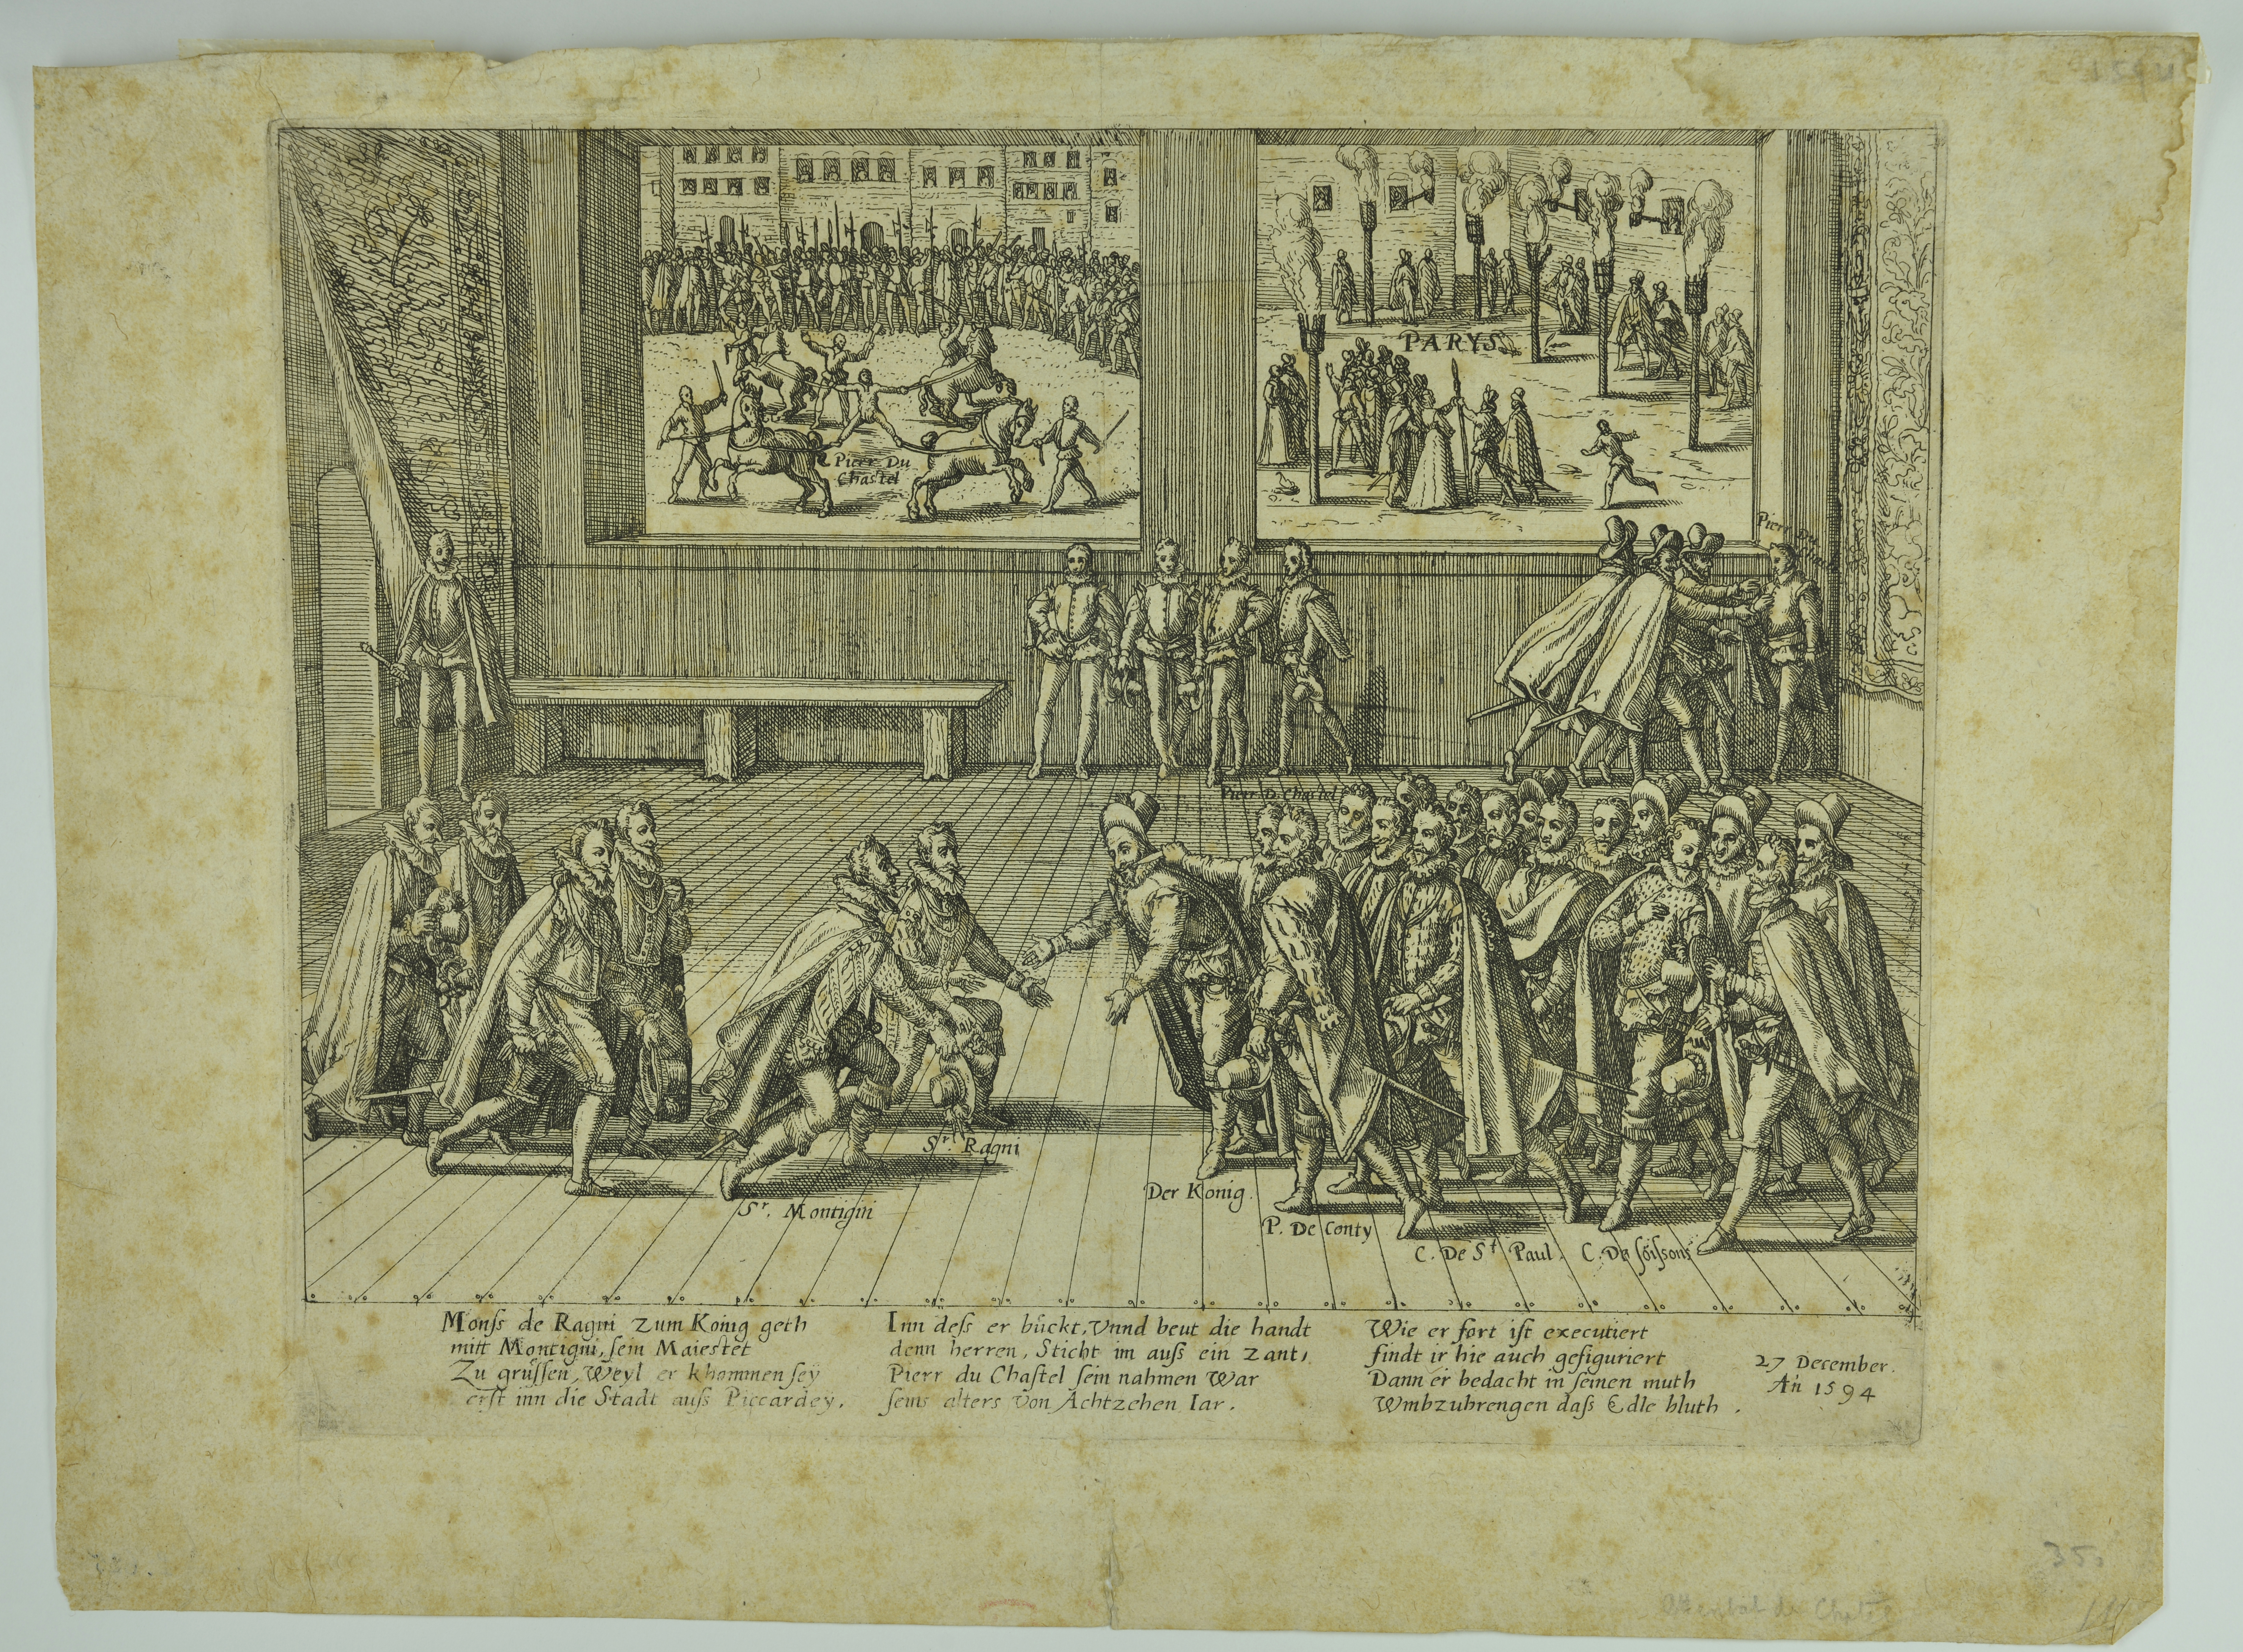 1594
Pierr Du
Chastel
PARYS
Pierr Du
Pierr D. Chastel
Sr. Ragni
Sr. Montigni
Der König.
P. De Conty
C. De St Paul.
C. De ſöiſsons
Monſs de Ragni zum König geth
mitt Montigni, ſein Maiestet
Zu grüſſen, Weyl er khommen ſeÿ
erſt inn die Stadt auſs Piccardey.
Inn deſs er bückt, Vnnd beut die handt
denn herren, Sticht im auſs ein zant,
Pierr du Chaſtel ſein nahmen War
ſeins alters Von Achtzehen Iar.
Wie er fort iſt executiert
findt ir hie auch gefiguriert
Dann er bedacht in ſeinen muth
Wmbzubrengen daſs Edle bluth.
27 December.
An 1594
35.